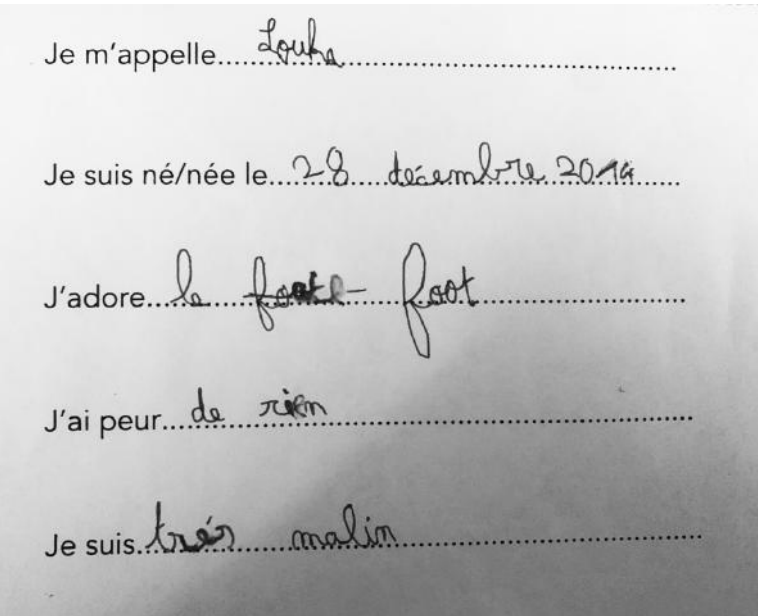 Je m'appelle Louka
Je suis né/née le 28 décembre 2014
J'adore le foot
J'ai peur de rien
Je suis trés malin